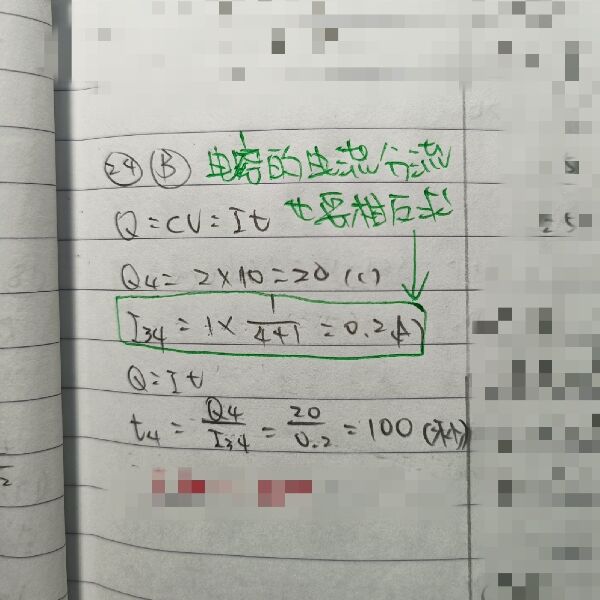 24 B 电容的电流分流
Q=CV=It 也要相反求
Q4=2×10=20(C)
I34=1×1/(4+1)=0.2(A)
Q=It
t4=Q4/I34=20/0.2=100(秒)